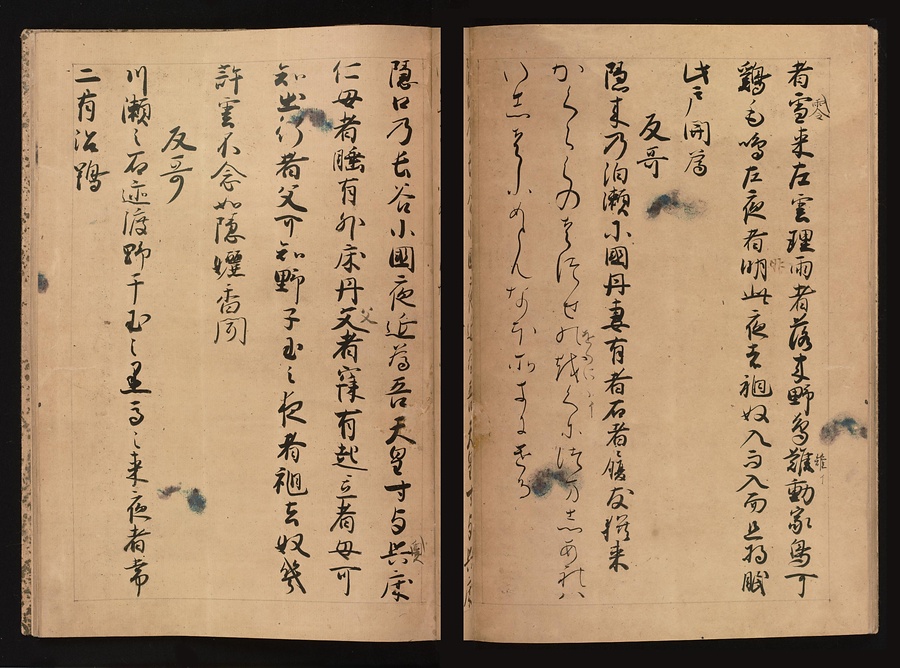 者雪来左雲理雨者落来野鳥雉動家鳥可
鶏毛鳴左夜者明此夜去昶奴入而入而且将眠
此戸開為
反哥
隠来乃泊瀬小國丹妻有者石者履友猶来
かくらくのはつせの越くにつましあれハ
いしは
隠口乃長谷小國夜延為吾天皇寸与共床
仁母者睡有外床丹父者寐有起立者母可
知出行者父可知野干玉之夜者昶去奴幾
許雲不念如隠嬬香聞
反哥
川瀬之石迹渡野干玉之黒馬之来夜者常
二有沼鴨